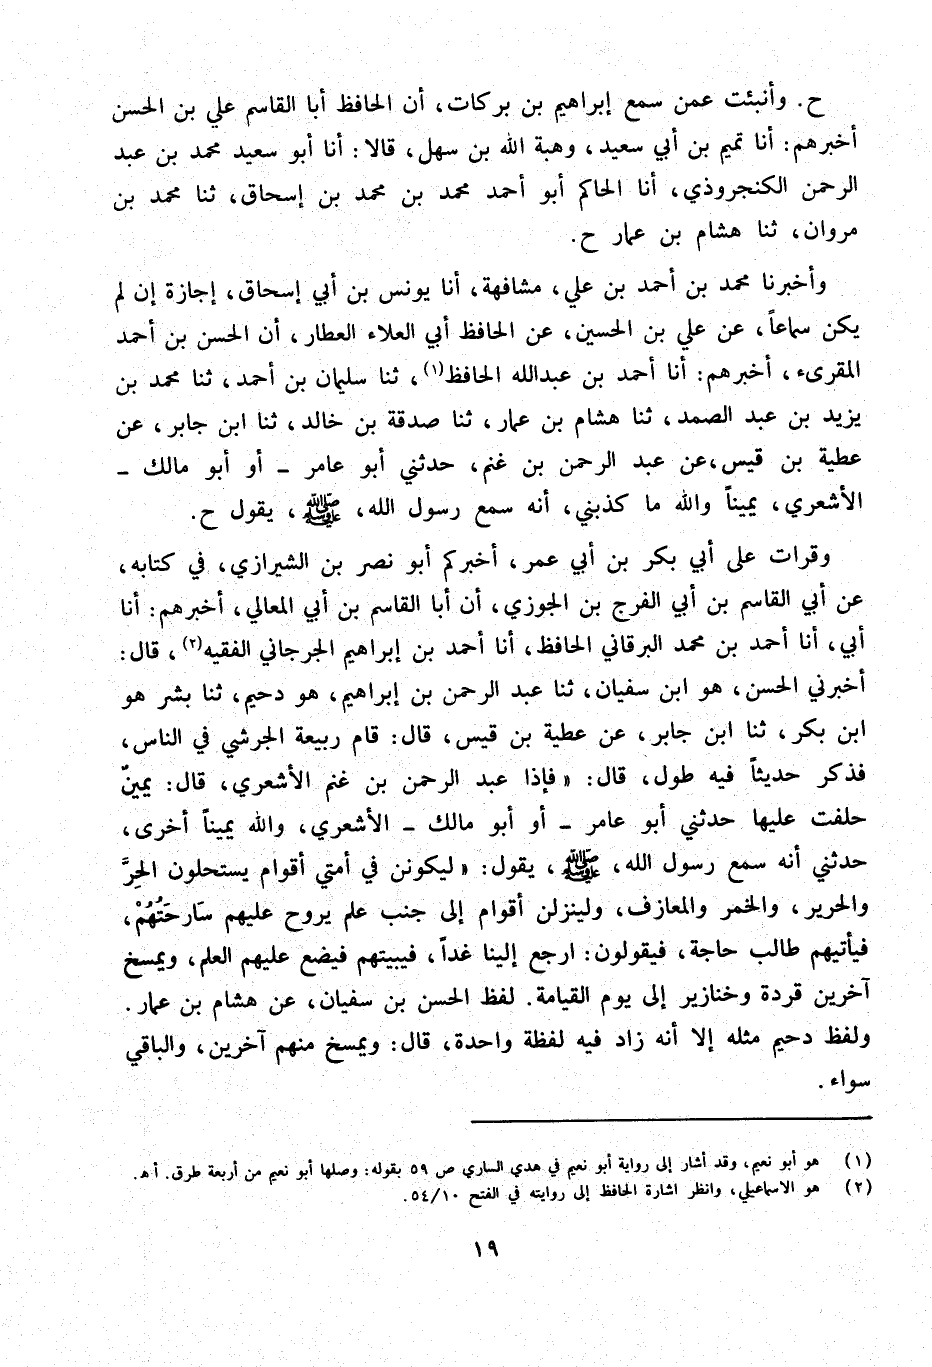 ح. وأنبئت عمن سمع إبراهيم بن بركات، أن الحافظ أبا القاسم علي بن الحسن
أخبرهم: أنا تميم بن أبي سعيد، وهبة الله بن سهل، قالا: أنا أبو سعيد محمد بن عبد
الرحمن الكنجروذي، أنا الحاكم أبو أحمد محمد بن محمد بن إسحاق، ثنا محمد بن
مروان، ثنا هشام بن عمار ح.
وأخبرنا محمد بن أحمد بن علي، مشافهة، أنا يونس بن أبي إسحاق، إجازة إن لم
يكن سماعاً، عن علي بن الحسين، عن الحافظ أبي العلاء العطار، أن الحسن بن أحمد
المقرىء، أخبرهم: أنا أحمد بن عبدالله الحافظ(١)، ثنا سليمان بن أحمد، ثنا محمد بن
يزيد بن عبد الصمد، ثنا هشام بن عمار، ثنا صدقة بن خالد، ثنا ابن جابر، عن
عطية بن قيس،عن عبد الرحمن بن غنم، حدثني أبو عامر - أو أبو مالك -
الأشعري، يميناً والله ما كذبني، أنه سمع رسول الله، ﷺ، يقول ح.
وقرات على أبي بكر بن أبي عمر، أخبركم أبو نصر بن الشيرازي، في كتابه،
عن أبي القاسم بن أبي الفرج بن الجوزي، أن أبا القاسم بن أبي المعالي، أخبرهم: أنا
أبي، أنا أحمد بن محمد البرقاني الحافظ، أنا أحمد بن إبراهيم الجرجاني الفقيه(٢)، قال:
أخبرني الحسن، هو ابن سفيان، ثنا عبد الرحمن بن إبراهيم، هو دحيم، ثنا بشر هو
ابن بكر، ثنا ابن جابر، عن عطية بن قيس، قال: قام ربيعة الجرشي في الناس،
فذكر حديثاً فيه طول، قال: «فإذا عبد الرحمن بن غنم الأشعري، قال: يمينٌ
حلفت عليها حدثني أبو عامر - أو أبو مالك - الأشعري، والله يميناً أخرى،
حدثني أنه سمع رسول الله، ﷺ، يقول: «ليكونن في أمتي أقوام يستحلون الحِرَّ
والحرير، والخمر والمعازف، ولينزلن أقوام إلى جنب علم يروح عليهم سَارحَتُهُمْ،
فيأتيهم طالب حاجة، فيقولون: ارجع إلينا غداً، فيبيتهم فيضع عليهم العلم، ويمسخ
آخرين قردة وخنازير إلى يوم القيامة. لفظ الحسن بن سفيان، عن هشام بن عمار.
ولفظ دحيم مثله إلا أنه زاد فيه لفظة واحدة، قال: ويمسخ منهم آخرين، والباقي
سواء.
(١) هو أبو نعيم، وقد أشار إلى رواية أبو نعيم في هدي الساري ص ٥٩ بقوله: وصلها أبو نعيم من أربعة طرق. أ هـ.
(٢) هو الاسماعيلي، وانظر اشارة الحافظ إلى روايته في الفتح ٥٤/١٠.
١٩